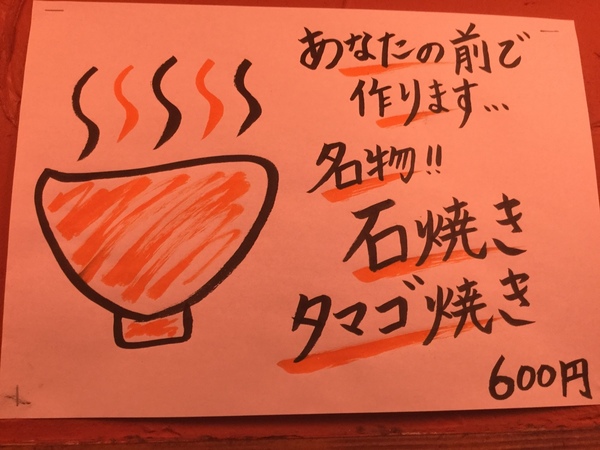 あなたの前で
作ります...
名物!!
石焼き
タマゴ焼き
600円